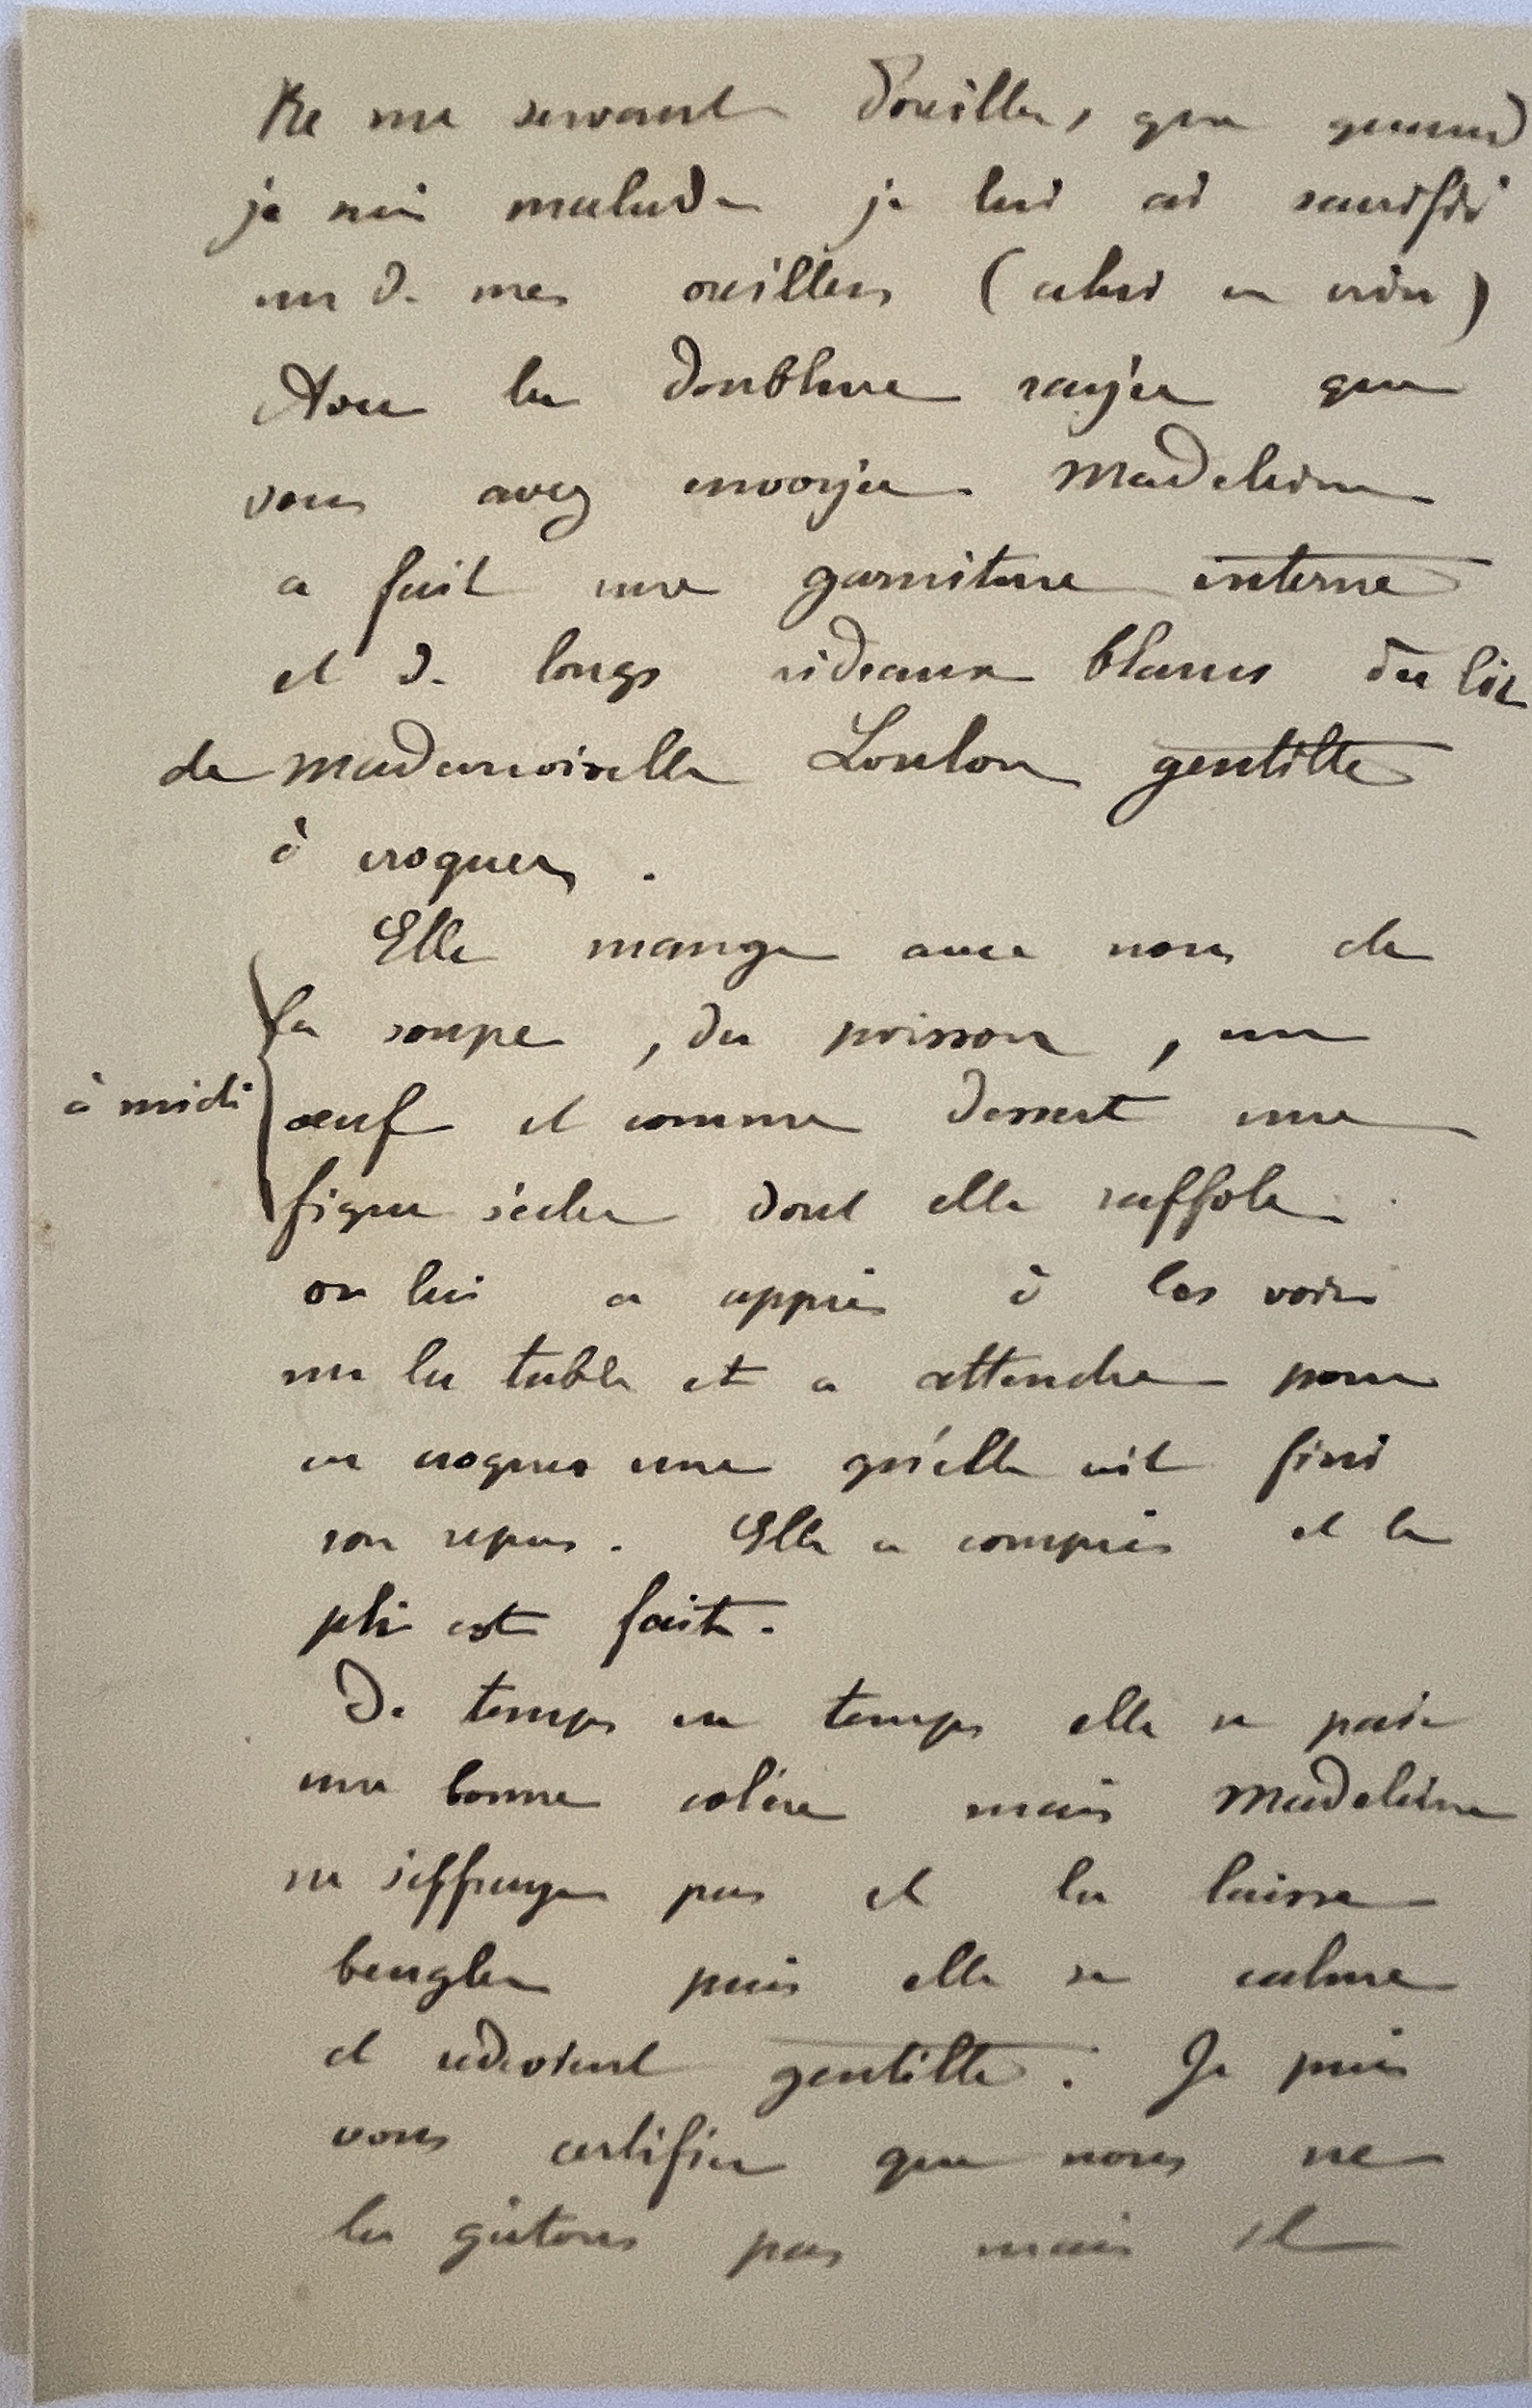 Ne me servant d'oreiller, que quand
je suis malade je lui ai sacrifié
un de mes oreillers (celui en crin)
Avec la doublure rayée que
vous avez envoyée Madeleine
a fait une garniture interne
et de longs rideaux blancs du lit
de mademoiselle Loulou gentille
à croquer.
Elle mange avec nous de
la soupe, du poisson, un
à midi œuf et comme dessert une
figue sèche dont elle raffole.
on lui a appris à les voir
sur la table et a attendre pour
en croquer une qu'elle ait fini
son repas. Elle a compris et le
pli est fait.
De temps en temps elle se paie
une bonne colère mais Madeleine
ne s'effraye pas et la laisse
beugler puis elle se calme
et redevient gentille. Je puis
vous certifier que nous ne
la gâtons pas mais il